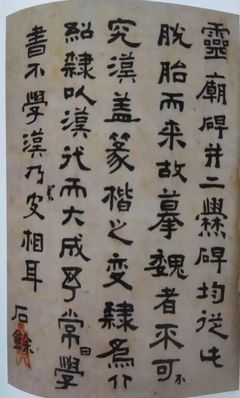 靈廟碑并二爨碑均從此
脫胎而来故摹魏者不可不
究漢盖篆楷之变隸為
紹隸以漢代而大成予常曰學
書不學漢乃皮相耳
石